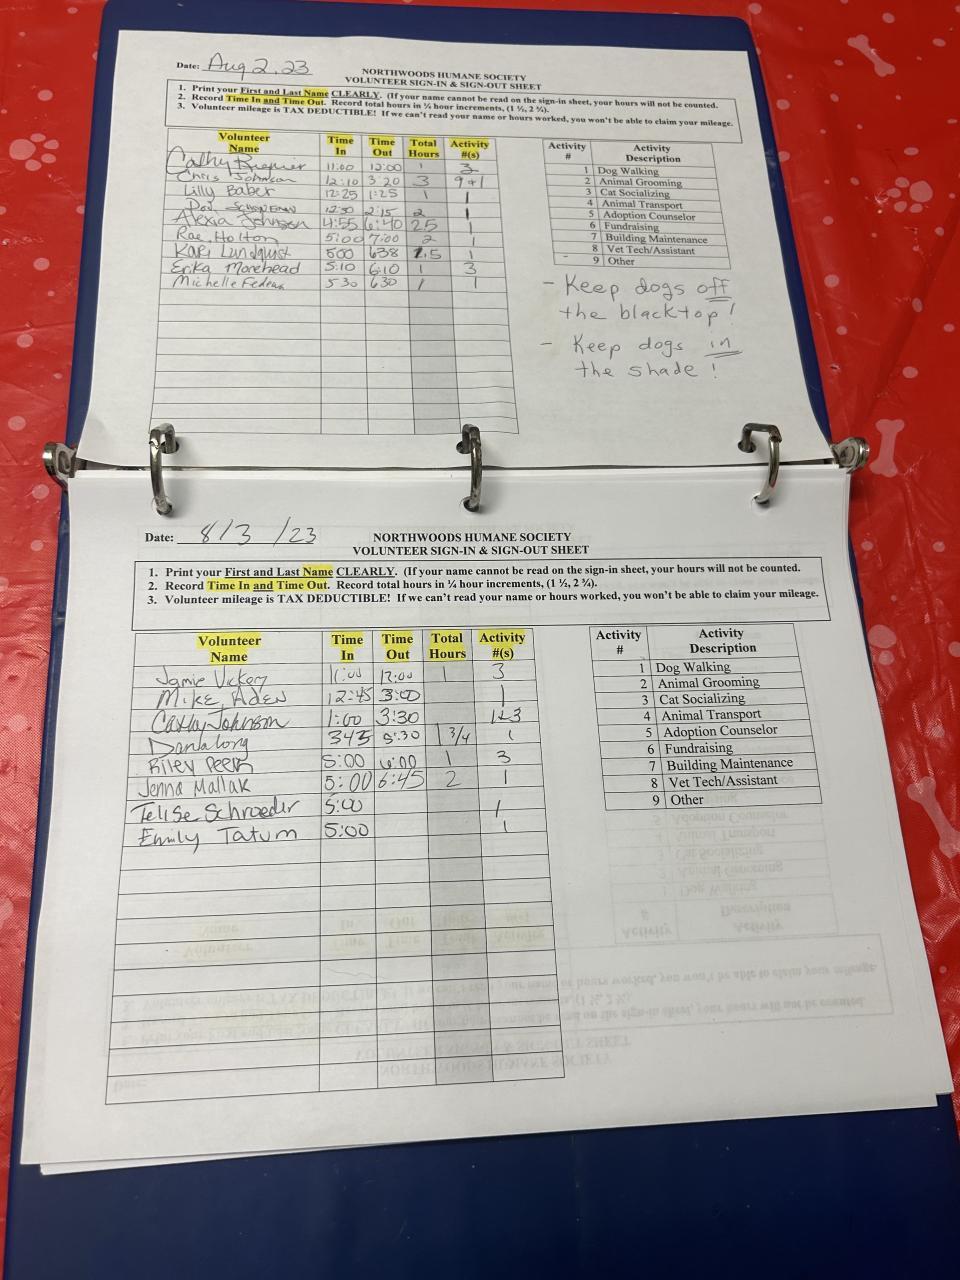 Date: Aug 2, 23
NORTHWOODS HUMANE SOCIETY
VOLUNTEER SIGN-IN & SIGN-OUT SHEET
1. Print your First and Last Name CLEARLY. (If your name cannot be read on the sign-in sheet, your hours will not be counted.
2. Record Time In and Time Out. Record total hours in ¼ hour increments, (1 ½, 2 ¾).
3. Volunteer mileage is TAX DEDUCTIBLE! If we can't read your name or hours worked, you won't be able to claim your mileage.
Volunteer Name Time In Time Out Total Hours Activity #(s)
Cathy 11:00 12:00 1 3
Chris Johnson 12:10 3:20 3 9+1
Lilly Baber 12:25 1:25 1 1
12:30 2:15 2 1
Alexia Johnson 4:55 6:40 25 1
Rae Holton 5:00 7:00 2 1
Kari Lundquist 500 638 1.5 1
Erika Morehead 5:10 6:10 1 3
Michelle 530 630 1 1
Activity # Activity Description
1 Dog Walking
2 Animal Grooming
3 Cat Socializing
4 Animal Transport
5 Adoption Counselor
6 Fundraising
7 Building Maintenance
8 Vet Tech/Assistant
9 Other
- Keep dogs off
the blacktop!
- Keep dogs in
the shade!
Date: 8/3/23
NORTHWOODS HUMANE SOCIETY
VOLUNTEER SIGN-IN & SIGN-OUT SHEET
1. Print your First and Last Name CLEARLY. (If your name cannot be read on the sign-in sheet, your hours will not be counted.
2. Record Time In and Time Out. Record total hours in ¼ hour increments, (1 ½, 2 ¾).
3. Volunteer mileage is TAX DEDUCTIBLE! If we can't read your name or hours worked, you won't be able to claim your mileage.
Volunteer Name Time In Time Out Total Hours Activity #(s)
Jamie Vickery 11:00 12:00 1 3
Mike Aden 12:45 3:00 1
Cathy Johnson 1:00 3:30 1+3
Dana Long 345 5:30 1 3/4 1
Riley 5:00 6:00 1 3
Jenna Mallak 5:00 6:45 2 1
Telise Schroeder 5:00 1
Emily Tatum 5:00 1
Activity # Activity Description
1 Dog Walking
2 Animal Grooming
3 Cat Socializing
4 Animal Transport
5 Adoption Counselor
6 Fundraising
7 Building Maintenance
8 Vet Tech/Assistant
9 Other